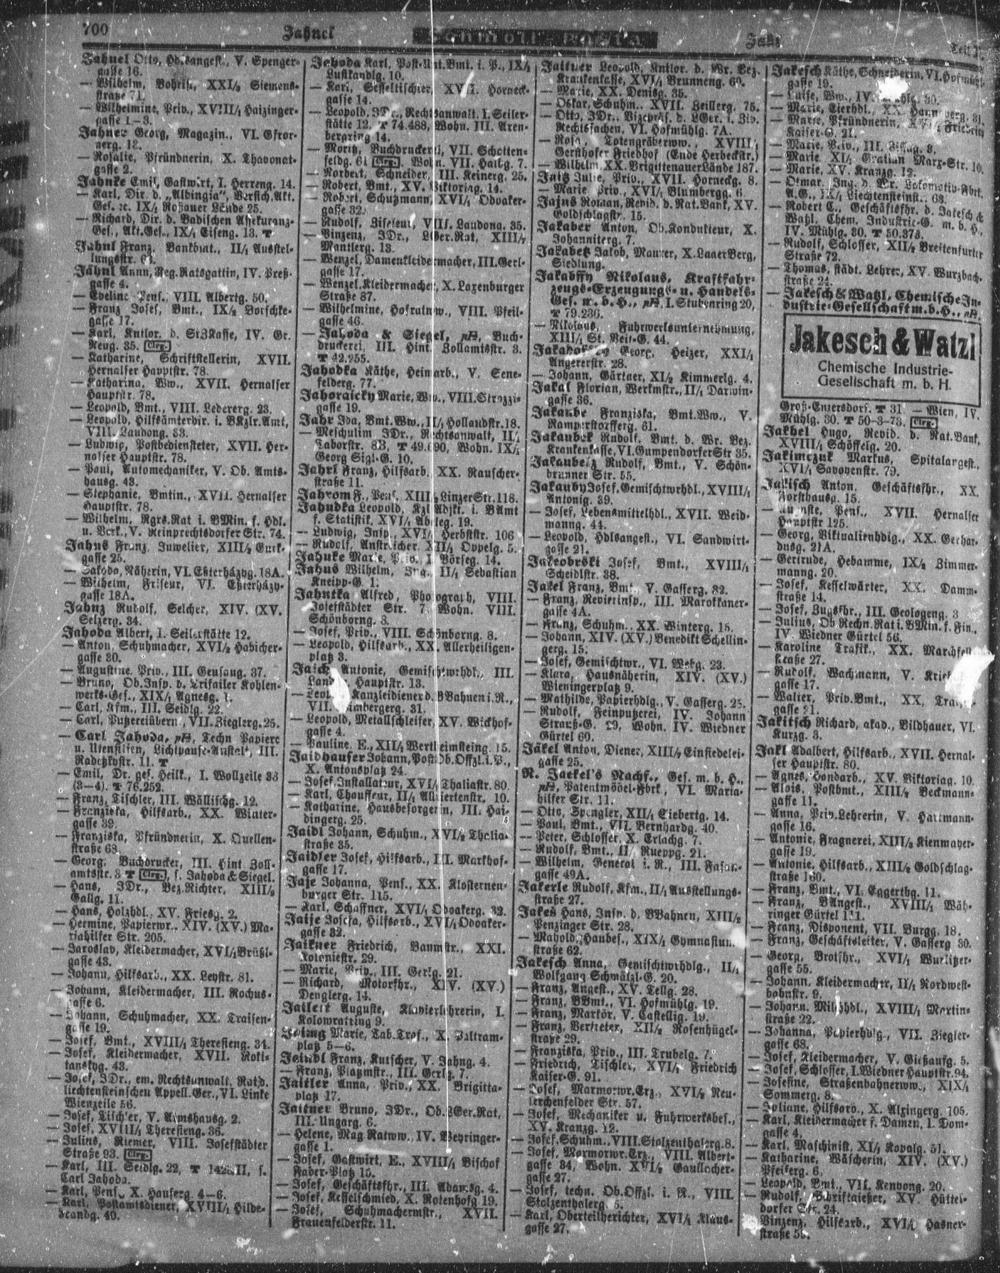 700
Jahnel
Jahnel Otto, Hd.Langest., V. Spenger-
gasse 16.
— Wilhelm, XXI/1 Siemens-
straße 71.
— Wilhelmine, Priv., XVIII/1 Haizinger-
gasse 1—3.
Jahner Georg, Magazin., VI.
— Rosalie, Pfründnerin, X. Thavonat-
gasse 2.
Jahnke Emil, Gastwirt, I. Herreng. 14.
— Karl, Dir. d. „Albingia“, Versich.Akt.
Ges., IX/1 Roßauer Lände 25.
— Richard, Dir. d. Badischen
Ges., Akt.Ges., IX/1 Eiseng. 13. T
Jahnl Franz, Bankbmt., II/1 Ausstel-
lungsstr.
Jähnl Anna, IV. Preß-
gasse 4.
— Eveline, Pens., VIII. Albertg. 50.
— Franz Josef, Bmt., IX/1
gasse 17.
— Karl, IV. Gr.
Neug. 35.
— Katharine, Schriftstellerin, XVII.
Hernalser Hauptstr. 78.
— Katharina, Ww., XVII. Hernalser
Hauptstr. 78.
— Leopold, Bmt., VIII. Ledererg. 23.
— Leopold, Hilfsämterdir. i. BKzlr.Amt,
VIII. Laudong. 53.
— Ludwig, Postbediensteter, XVII. Her-
nalser Hauptstr. 78.
— Paul, Automechaniker, V. Ob. Amts-
hausg. 43.
— Stephanie, Bmtin., XVII. Hernalser
Hauptstr. 78.
— Wilhelm, Rgrs.Rat i. BMin. f. Hdl.
u. Verk., V. Reinprechtsdorfer Str. 74.
Jahns Franz, Juwelier, XIII/1
gasse 25.
— Jakoba, Näherin, VI. Esterházyg. 18A.
— Wilhelm, Friseur, VI. Esterházy-
gasse 18A.
Jahnz Rudolf, Selcher, XIV. (XV.)
Selzerg. 34.
Jahoda Albert, I. Seilerstätte 12.
— Anton, Schuhmacher, XVI/1 Habicher-
gasse 30.
— Augustine, Priv., III. Geusaug. 37.
— Bruno, Ob.Insp. d. Trifailer Kohlen-
werks-Ges., XIX/1 Agnesg.
— Carl, Kfm., III. Seidlg. 22.
— Carl, VII. Zieglerg. 25.
— Carl Jahoda, Techn. Papiere
u. Utensilien, Lichtpause-Anstalt, III.
Radetzkystr. 11. T
— Emil, Dr. ges. Heilk., I. Wollzeile 33
(3—4). T 76.252.
— Franz, Tischler, III. Wällischg. 12.
— Franziska, Hilfsarb., XX. Winter-
gasse 39.
— Franziska, Pfründnerin, X. Quellen-
straße 63.
— Georg, Buchdrucker, III. Hint. Zoll-
amtsstr. 3 T f. Jahoda & Siegel.
— Hans, JDr., Bez.Richter, XIII/1
Gallg. 11.
— Hans, Holzhdl., XV. Friesg. 2.
— Hermine, Papierwr., XIV. (XV.) Ma-
riahilfer Str. 205.
— Jaroslav, Kleidermacher, XVI/1 Brüßl-
gasse 43.
— Johann, Hilfsarb., XX. Leystr. 81.
— Johann, Kleidermacher, III. Rochus-
gasse 6.
— Johann, Schuhmacher, XX. Traisen-
gasse 19.
— Josef, Bmt., XVIII/1 Theresieng. 34.
— Josef, Kleidermacher, XVII. Roki-
tanskyg. 43.
— Josef, JDr., em. Rechtsanwalt, Rat d.
liechtensteinschen Appell.Ger., VI. Linke
Wienzeile 56.
— Josef, Tischler, V. Arnushausg. 2.
— Josef, XVIII/1 Theresieng. 36.
— Julius, Riemer, VIII. Josefstädter
Straße 93.
— Karl, III. Seidlg. 22, f.
Carl Jahoda.
— Karl, Pens., X. Hauserg. 4—6.
— Karl, Postamtsdiener, XVIII/1 Hilde-
brandg. 40.
Jahoda Karl, Post-Unt.Bmt. i. P., IX/1
Lustkandlg. 10.
— Karl, XVI. Horneck-
gasse 14.
— Leopold, JDr., Rechtsanwalt, I. Seiler-
stätte 12, T 74.488, Wohn. III. Aren-
bergring 14.
— Moritz, Buchdruckerei, VII. Schotten-
feldg. 61 Wohn. VII. Halbg. 7.
— Norbert, Schneider, III. Keinerg. 25.
— Robert, Bmt., XV. Viktoriag. 14.
— Robert, Schutzmann, XVI/1 Odoaker-
gasse 32.
— Rudolf, VIII. Laudong. 35.
— Vinzenz, JDr., XIII/1
Mantlerg. 13.
— Wenzel, Damenkleidermacher, III. Gerl-
gasse 17.
— Wenzel, Kleidermacher, X. Laxenburger
Straße 87.
— Wilhelmine, Hofratsw., VIII. Pfeil-
gasse 46.
— Jahoda & Siegel, Buch-
druckerei, III. Hint. Zollamtsstr. 3.
T 42.255.
Jahodka Käthe, Heimarb., V. Sene-
felderg. 77.
Jahoraicky Marie, Ww., VIII. Strozzi-
gasse 19.
Jahr Ida, Bmt.Ww., II/1 Hollandstr. 18.
— Meschulim JDr., Rechtsanwalt, II/1
Taborstr. Wohn. IX/1
Georg Sigl-G. 10.
Jahrl Franz, Hilfsarb., XX. Rauscher-
straße 11.
Jahrom F., Pens., XIII/1 Linzer Str. 118.
Jahudka Leopold, i. BAmt
f. Statistik, XVI/1 Abeleg. 19.
— Ludwig, Insp., XVI/1 Herbststr. 106
— Rudolf, Anstreicher, XII/1 Oppelg. 5.
Jahuke Marie, Priv., I. Börseg. 14.
Jahus Wilhelm, Ing., II/1 Sebastian
Kneipp-G. 1.
Jahutka Alfred, Photograph, VIII.
Josefstädter Str. 7, Wohn. VIII.
Schönborng. 3.
— Josef, Priv., VIII. Schönborng. 8.
— Leopold, Hilfsarb., XX. Allerheiligen-
platz 3.
Antonie, Gemischtwrhdl., III.
Hauptstr. 13.
Kanzleidiener d. BBahnen i. R.,
VII. 31.
— Leopold, Metallschleifer, XV. Wickhof-
gasse 4.
— Pauline, E., XII/1 Wertheimsteing. 15.
Jaidhauser Johann, Post-Ob.Offzl. i. P.,
X. Antonsplatz 24.
— Josef, Installateur, XVI/1 Thaliastr. 80.
— Karl, Chauffeur, II/1 10.
— Katharine, Hausbesorgerin, III. Hai-
dingerg. 25.
Jaidl Johann, Schuhm., XVI/1 Thalia-
straße 35.
Jaidler Josef, Hilfsarb., III. Marxhof-
gasse 17.
Jaje Johanna, Pens., XX. Klosterneu-
burger Str. 115.
— Karl, Schaffner, XVI/1 Odoakerg. 32.
Jaije Josefa, Hilfsarb., XVI/1 Odoaker-
gasse 32.
Jaikner Friedrich, Baumstr., XXI.
Koloniestr. 29.
— Marie, Priv., III. Gerlg. 21.
— Richard, Motorfhr., XIV. (XV.)
Denglerg. 14.
Jailert Auguste, Klavierlehrerin, I.
Kolowratring 9.
Marie, Tab.Traf., X.
platz 5—6.
Jeindl Franz, Kutscher, V. Jahng. 4.
— Franz, Platzmstr., III. Gerlg. 7.
Jaitler Anna, Priv., XX. Brigitta-
platz 17.
Jaitner Bruno, JDr., Ob.LGer.Rat,
III. Ungarg. 6.
— Helene, Mag.Ratww., IV. Weyringer-
gasse 1.
— Josef, Gastwirt, E., XVIII/1 Bischof
Faber-Platz 15.
— Josef, Geschäftsfhr., III. Adamsg. 4.
— Josef, Kesselschmied, X. Rotenhofg. 19.
— Josef, Schuhmachermstr., XVII.
Frauenfelderstr. 11.
Jaitner Leopold, Kntlor. d. Wr. Bez.
Krankenkasse, XVI/1 Brunneng. 60.
— Marie, XX. Denisg. 35.
— Oskar, Schuhm., XVII. Zeillerg. 75.
— Otto, JDr., Vizepräs. d. LGer. f. Ziv.
Rechtssachen, VI. Hofmühlg. 7A.
— Rosa, Totengräbersww., XVIII/1
Gersthofer Friedhof (Ende Herbeckstr.)
— Wilhelm, XX. Brigittenauer Lände 187.
Jaitz Julie, Priv., XVII. Horneckg. 8.
— Marie, Priv., XVI/1 Blumbergg. 6.
Jajus Roman, Revid. d. Nat.Bank, XV.
Goldschlagstr. 15.
Jakaber Anton, Ob.Kondukteur, X.
Johanniterg. 7.
Jakabetz Jakob, Maurer, X. Laaer Berg,
Siedlung.
Jakabffy Nikolaus, Kraftfahr-
zeugs-Erzeugungs- u. Handels-
Ges. m. b. H., I. Stubenring 20,
T 79.236.
— Nikolaus, Fuhrwerksunternehmung,
XIII/1 St. Veit-G. 44.
Georg, Heizer, XXI/1
Angererstr. 28.
— Johann, Gärtner, XI/1 Kimmerlg. 4.
Jakal Florian, Werkmstr., II/1 Darwin-
gasse 36.
Jakaube Franziska, Bmt.Ww., V.
Ramperstorfferg. 61.
Jakaubek Rudolf, Bmt. d. Wr. Bez.
Krankenkasse, VI. Gumpendorfer Str. 35.
Jakaubetz Rudolf, Bmt., V. Schön-
brunner Str. 55.
Jakauby Josef, Gemischtwrhdl., XVIII/1
Antonig. 39.
— Josef, Lebensmittelhdl., XVII. Weid-
manng. 44.
— Leopold, Hdlsangest., VI. Sandwirt-
gasse 21.
Jakeobrski Josef, Bmt., XVIII/1
Scheidlstr. 38.
Jakel Franz, Bmt., V. Gasserg. 32.
— Franz, Revierinsp., III. Marokkaner-
gasse 4A.
— Franz, Schuhm., XX. Winterg. 15.
— Johann, XIV. (XV.) Benedikt Schellin-
gerg. 15.
— Josef, Gemischtwr., VI. Webg. 23.
— Klara, Hausnäherin, XIV. (XV.)
Wieningerplatz 9.
— Mathilde, Papierhdlg., V. Gasserg. 25.
— Rudolf, Feinputzerei, IV. Johann
Strauß-G. Wohn. IV. Wiedner
Gürtel 60.
Jäkel Anton, Diener, XIII/1 Einsiedelei-
gasse 25.
R. Jaekel's Nachf., Ges. m. b. H.,
Patentmöbel-Fbrk., VI. Maria-
hilfer Str. 11.
— Otto, Spengler, XII/1 Siebertg. 14.
— Paul, Bmt., VII. Bernhardg. 40.
— Peter, Schlosser, X. Erlachg. 7.
— Rudolf, Bmt., II/1 Rueppg. 21.
— Wilhelm, General i. R., III. Fasan-
gasse 49A.
Jakerle Rudolf, Kfm., II/1 Ausstellungs-
straße 27.
Jakes Hans, Insp. d. BBahnen, XIII/1
Penzinger Str. 28.
— Mahold, Handel, XIX/1 Gymnasium-
straße 62.
Jakesch Anna, Gemischtwrhdlg., II/1
Wolfgang Schmälzl-G. 20.
— Franz, Angest., XV. Tellg. 28.
— Franz, BBmt., VI. Hofmühlg. 19.
— Franz, Markör, V. Castellig. 19.
— Franz, Vertreter, XII/1 Rosenhügel-
straße 29.
— Franziska, Priv., III. Trubelg. 7.
— Friedrich, Tischler, XVI/1 Friedrich
Kaiser-G. 91.
— Josef, Marmorwr.Erz., XVI/1 Neu-
lerchenfelder Str. 57.
— Josef, Mechaniker u. Fuhrwerksbes.,
XV. Kranzg. 12.
— Josef, Schuhm., VIII. Stolzenthalerg. 8.
— Josef, Marmorwr.Erz., VIII. Albert-
gasse 34, Wohn. XVI/1 Gaullacher-
gasse 27.
— Josef, techn. Ob.Offzl. i. R., VIII.
Stolzenthalerg. 5.
— Karl, Oberteilherrichter, XVI/1 Klaus-
gasse 27.
Jakesch Käthe, Schneiderin, VI. Hofmühl-
gasse 19.
— Luise, Ww., IV.
— Marie, Tierhdl., XX.
— Marie, Pfründnerin, XVI/1 Friedrich
Kaiser-G. 21.
— Marie, Priv., III.
— Marie, XI/1 Gratian Marx-Str. 10.
— Marie, XV. Kranzg. 12.
— Otmar, Ing. d. Wr. Lokomotiv-Fbrk.
A.G., IX/1 Liechtensteinstr. 63.
— Robert C., Geschäftsfhr. d. Jakesch &
Watzl, Chem. Industrie-G. m. b. H.,
IV. Mühlg. 30. T 50.373.
— Rudolf, Schlosser, XII/1 Breitenfurter
Straße 72.
— Thomas, städt. Lehrer, XV. Wurzbach-
straße 24.
— Jakesch & Watzl, Chemische In-
dustrie-Gesellschaft m. b. H.,
Jakesch & Watzl
Chemische Industrie-
Gesellschaft m. b. H.
Groß-Enzersdorf. T 31 — Wien, IV.
Mühlg. 30. T 50-3-73.
Jakhel Hugo, Revid. d. Nat.Bank,
XVIII/1 Schöffelg. 20.
Jakimczuk Markus, Spitalangest.,
XVI/1 Savoyenstr. 79.
Jakisch Anton, Geschäftsfhr., XX.
Forsthausg. 15.
— Auguste, Pens., XVII. Hernalser
Hauptstr. 125.
— Georg, Viktualienhdlg., XX. Gerhar-
dusg. 21A.
— Gertrude, Hebamme, IX/1 Zimmer-
manng. 20.
— Josef, Kesselwärter, XX. Damm-
straße 14.
— Josef, Zugsfhr., III. Geologeng. 3
— Julius, Ob.Rechn.Rat i. BMin. f. Fin.,
IV. Wiedner Gürtel 56.
— Karoline, Trafik., XX. Marchfeld-
straße 27.
— Rudolf, Wachmann, V.
gasse 17.
— Walter, Priv.Bmt., XX.
gasse 21.
Jakitsch Richard, akad. Bildhauer, VI.
Kurzg. 3.
Jakl Adalbert, Hilfsarb., XVII. Hernal-
ser Hauptstr. 80.
— Agnes, Hondarb., XV. Viktoriag. 10.
— Alois, Postbmt., XIII/1 Beckmann-
gasse 11.
— Anna, Priv.Lehrerin, V. Hartmann-
gasse 16.
— Antonie, Fragnerei, XIII/1 Kienmayer-
gasse 19
— Antonie, Hilfsarb., XIII/1 Goldschlag-
straße
— Franz, Bmt., VI. Eggerthg. 11.
— Franz, BAngest., XVIII/1 Wäh-
ringer Gürtel
— Franz, Disponent, VII. Burgg. 18.
— Franz, Geschäftsleiter, V. Gasserg. 30.
— Georg, Brotfhr., XVI/1 Wurlitzer-
gasse 55.
— Johann, Kleidermacher, II/1 Nordwest-
bahnstr. 9.
— Johann, Milchhdl., XVIII/1 Martin-
straße 22.
— Johanna, Papierhdlg., VII. Ziegler-
gasse 68.
— Josef, Kleidermacher, V. Gießaufg. 5.
— Josef, Schlosser, I. Wiedner Hauptstr. 94.
— Josefine, Straßenbahnerww., XIX/1
Sommerg. 8.
— Juliane, Hilfsarb., X. Alxingerg. 105.
— Karl, Kleidermacher f. Damen, I. Dom-
gasse 4.
— Karl, Maschinist, XI/1 Kopalg. 51.
— Katharine, Wäscherin, XIV. (XV.)
Pfeiferg. 6.
— Leopold, Bmt., VII. Kenyong. 20.
— Rudolf, Schriftgießer, XV. Hüttel-
dorfer Str. 24.
— Vinzenz, Hilfsarb., XVI/1 Hasner-
straße